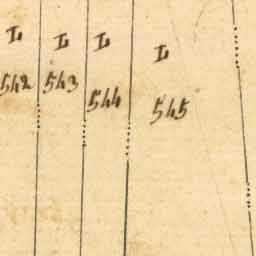 L L L L
542 543 544 545